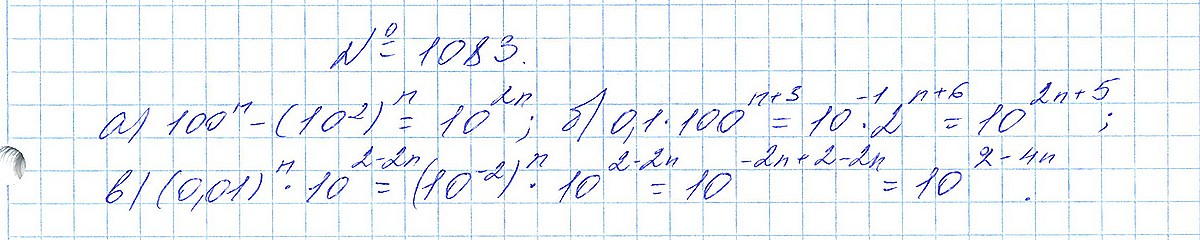 № 1083.
а) 100ⁿ - (10²)ⁿ = 10²ⁿ; б) 0,1 · 100ⁿ⁺³ = 10⁻¹ · 2ⁿ⁺⁶ = 10²ⁿ⁺⁵;
в) (0,01)ⁿ · 10²⁻²ⁿ = (10⁻²)ⁿ · 10²⁻²ⁿ = 10⁻²ⁿ⁺²⁻²ⁿ = 10²⁻⁴ⁿ.